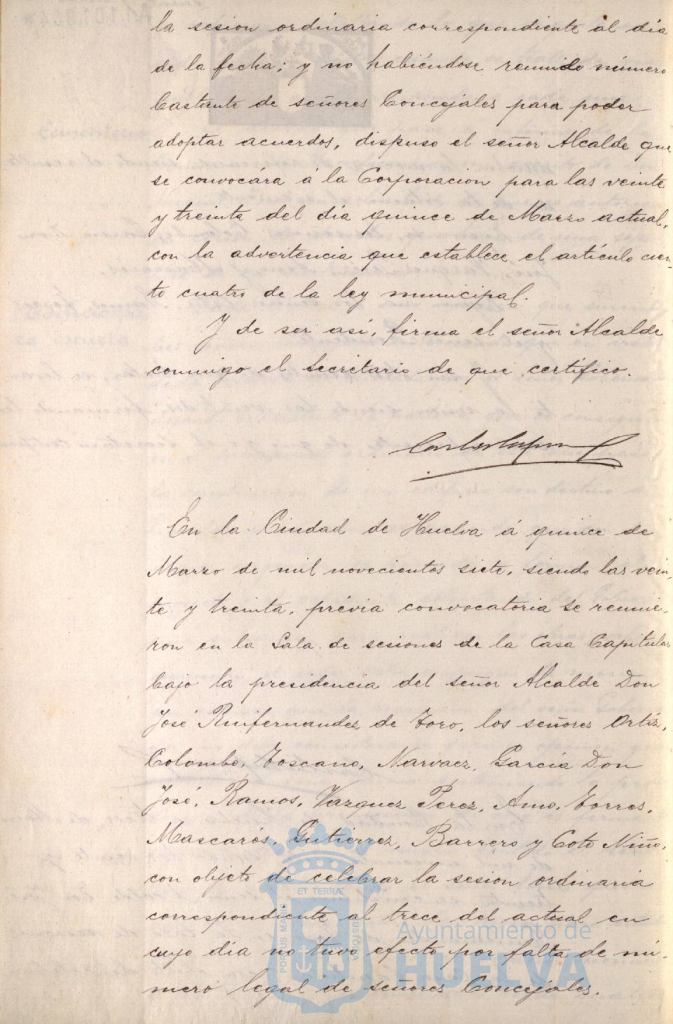 la sesion ordinaria correspondiente al dia
de la fecha; y no habiéndose reunido número
bastante de señores Concejales para poder
adoptar acuerdos, dispuso el señor Alcalde que
se convocára á la Corporacion para las veinte
y treinta del dia quince de Marzo actual,
con la advertencia que establece el artículo cien-
to cuatro de la ley municipal.
Y de ser así, firma el señor Alcalde
conmigo el Secretario de que certifico.
En la Ciudad de Huelva á quince de
Marzo de mil novecientos siete, siendo las vein-
te y treinta, prévia convocatoria se reunie-
ron en la Sala de sesiones de la Casa Capitular
bajo la presidencia del señor Alcalde Don
José Ruifernandez de Toro, los señores Ortiz,
Colombo, Toscano, Narvaez, García Don
José, Ramos, Vazquez Perez, Amo, Torres,
Mascarós, Gutierrez, Barrero y Coto Niño,
con objeto de celebrar la sesion ordinaria
correspondiente al trece del actual en
cuyo dia no tuvo efecto por falta de nú-
mero legal de señores Concejales.
Ayuntamiento de
HUELVA